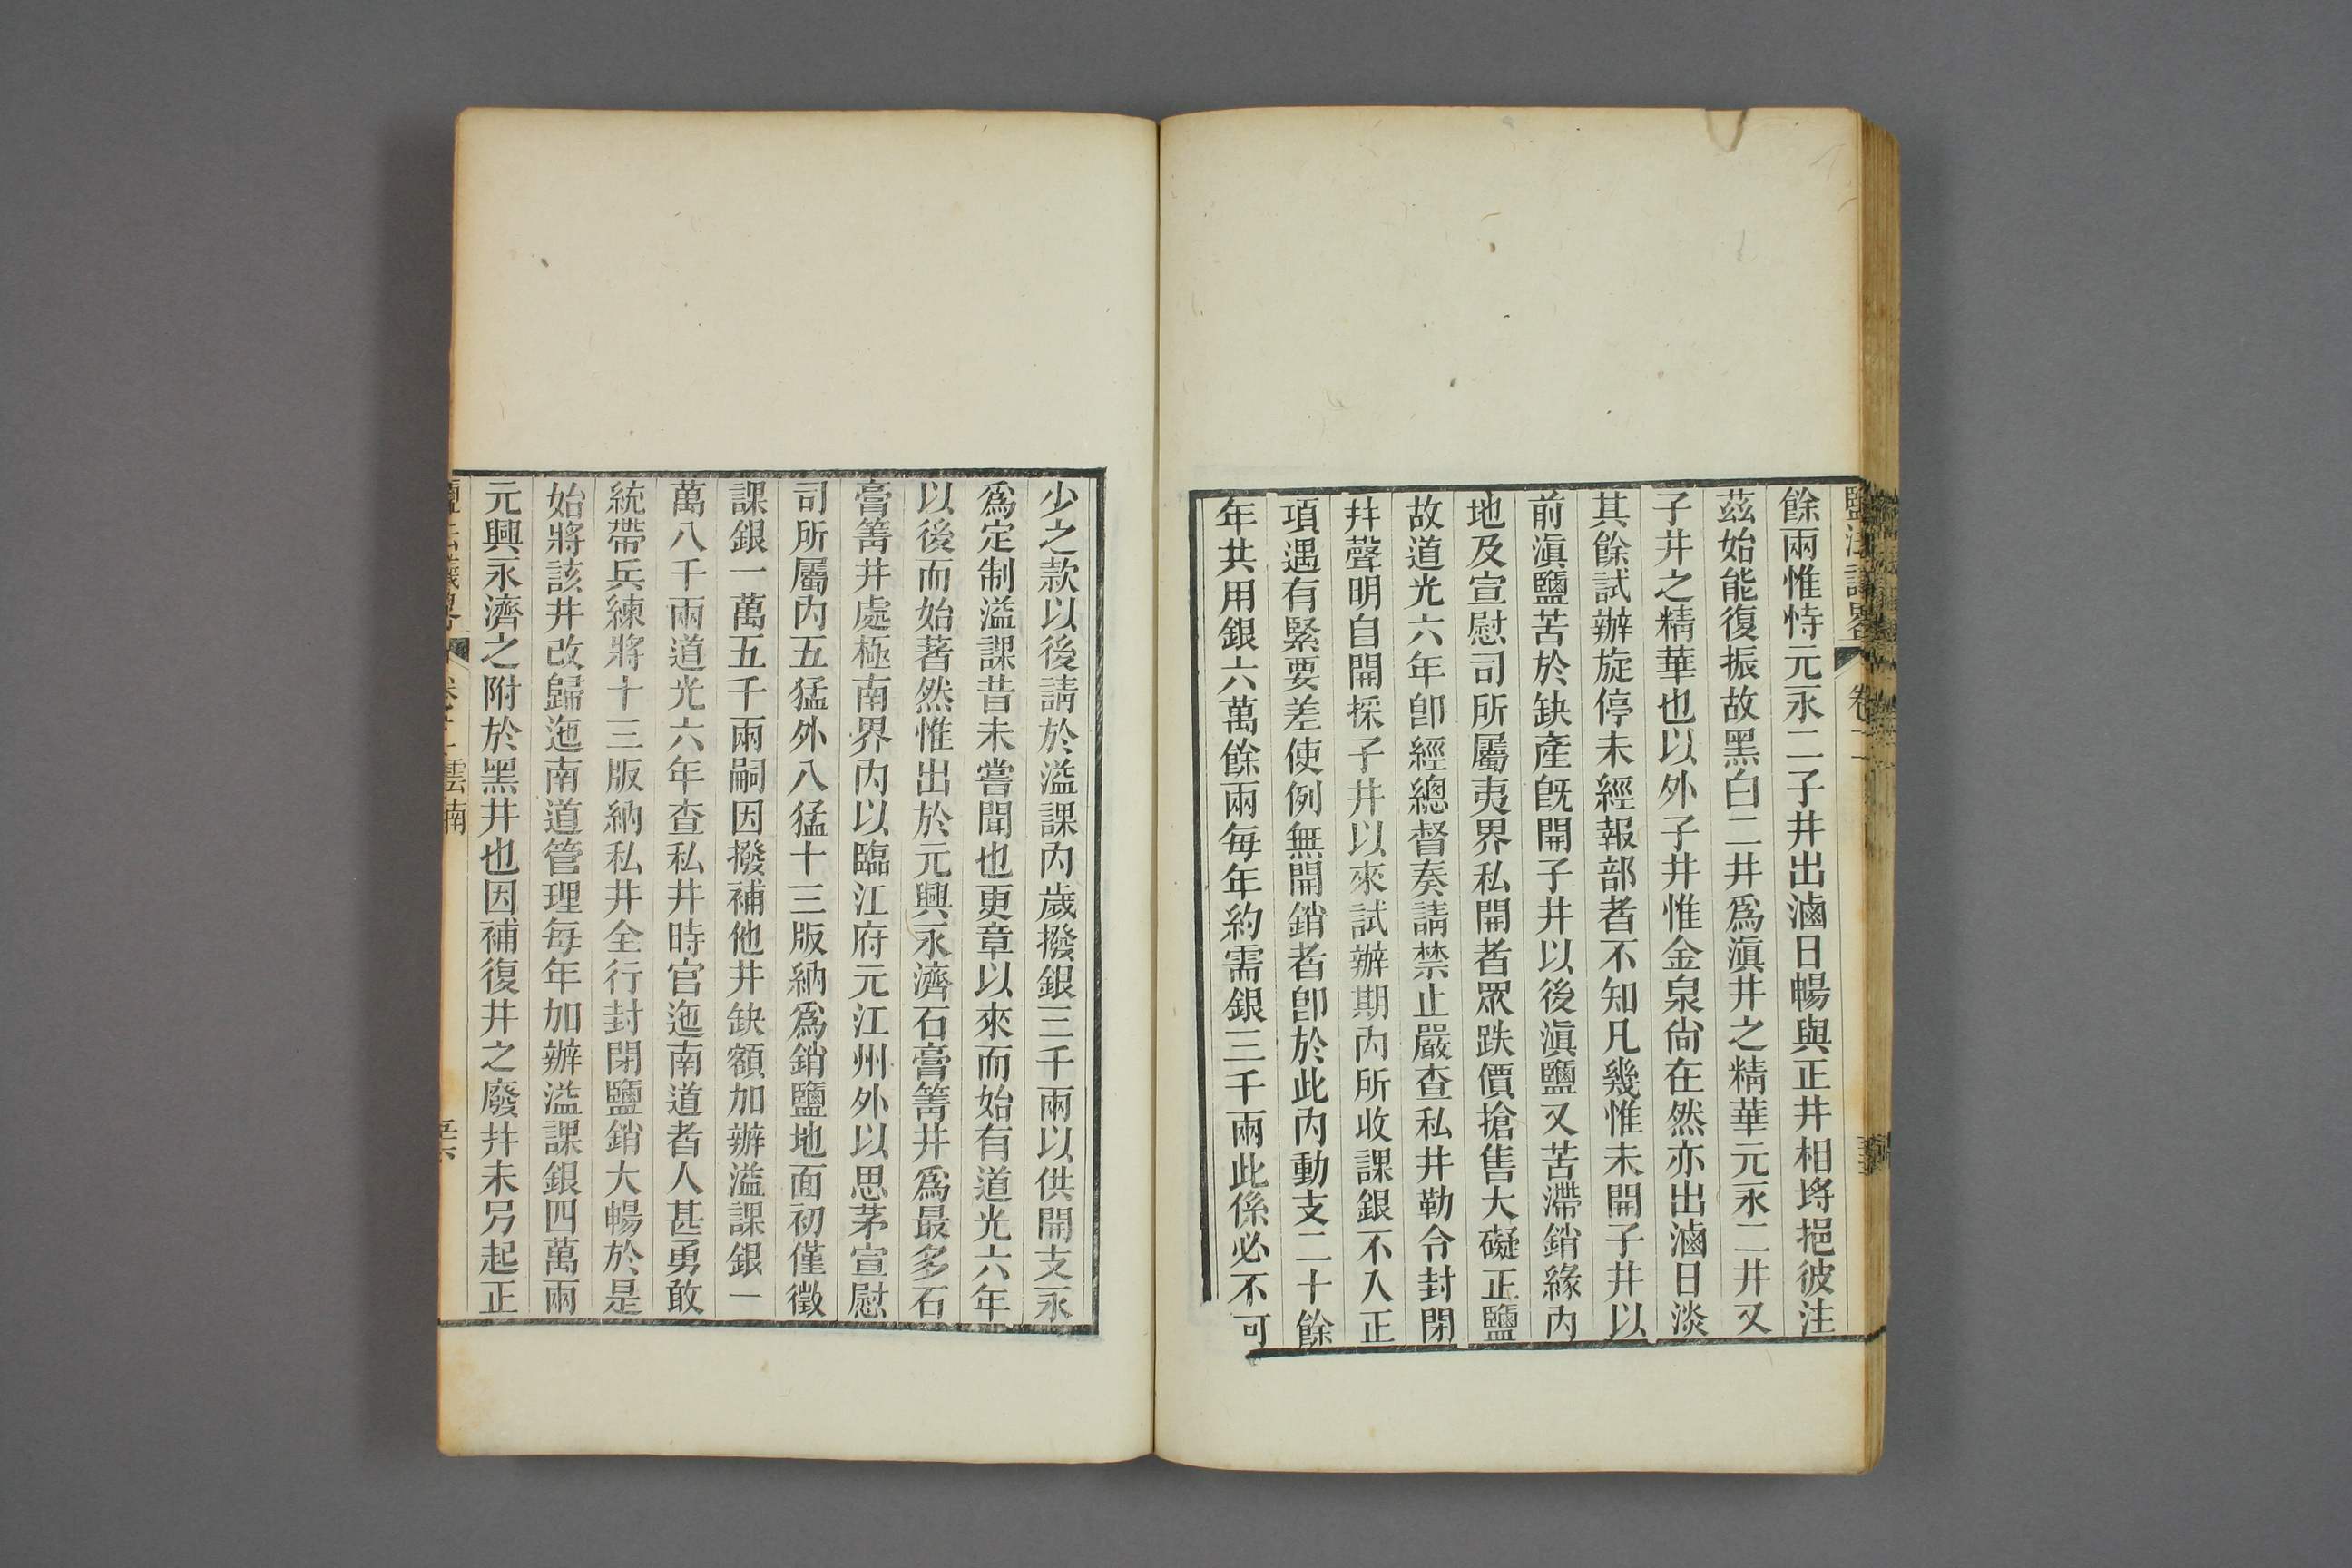 鹽法議畧
卷二
餘兩惟恃元永二子井出滷日暢與正井相埒挹彼注
茲始能復振故黑白二井爲滇井之精華元永二井又
子井之精華也以外子井惟金泉尙在然亦出滷日淡
其餘試辦旋停未經報部者不知凡幾惟未開子井以
前滇鹽苦於缺產旣開子井以後滇鹽又苦滯銷緣內
地及宣慰司所屬夷界私開者眾跌價搶售大礙正鹽
故道光六年卽經總督奏請禁止嚴查私井勒令封閉
井聲明自開採子井以來試辦期內所收課銀不入正
項遇有緊要差使例無開銷者卽於此內動支二十餘
年共用銀六萬餘兩每年約需銀三千兩此係必不可
少之款以後請於溢課內歲撥銀三千兩以供開支永
爲定制溢課昔未嘗聞也更章以來而始有道光六年
以後而始著然惟出於元興永濟石膏箐井爲最多石
膏箐井處極南界內以臨江府元江州外以思茅宣慰
司所屬內五猛外八猛十三版納爲銷鹽地面初僅徵
課銀一萬五千兩嗣因撥補他井缺額加辦溢課銀一
萬八千兩道光六年查私井時官迤南道者人甚勇敢
統帶兵練將十三版納私井全行封閉鹽銷大暢於是
始將該井改歸迤南道管理每年加辦溢課銀四萬兩
元興永濟之附於黑井也因補復井之廢井未另起正
雲南